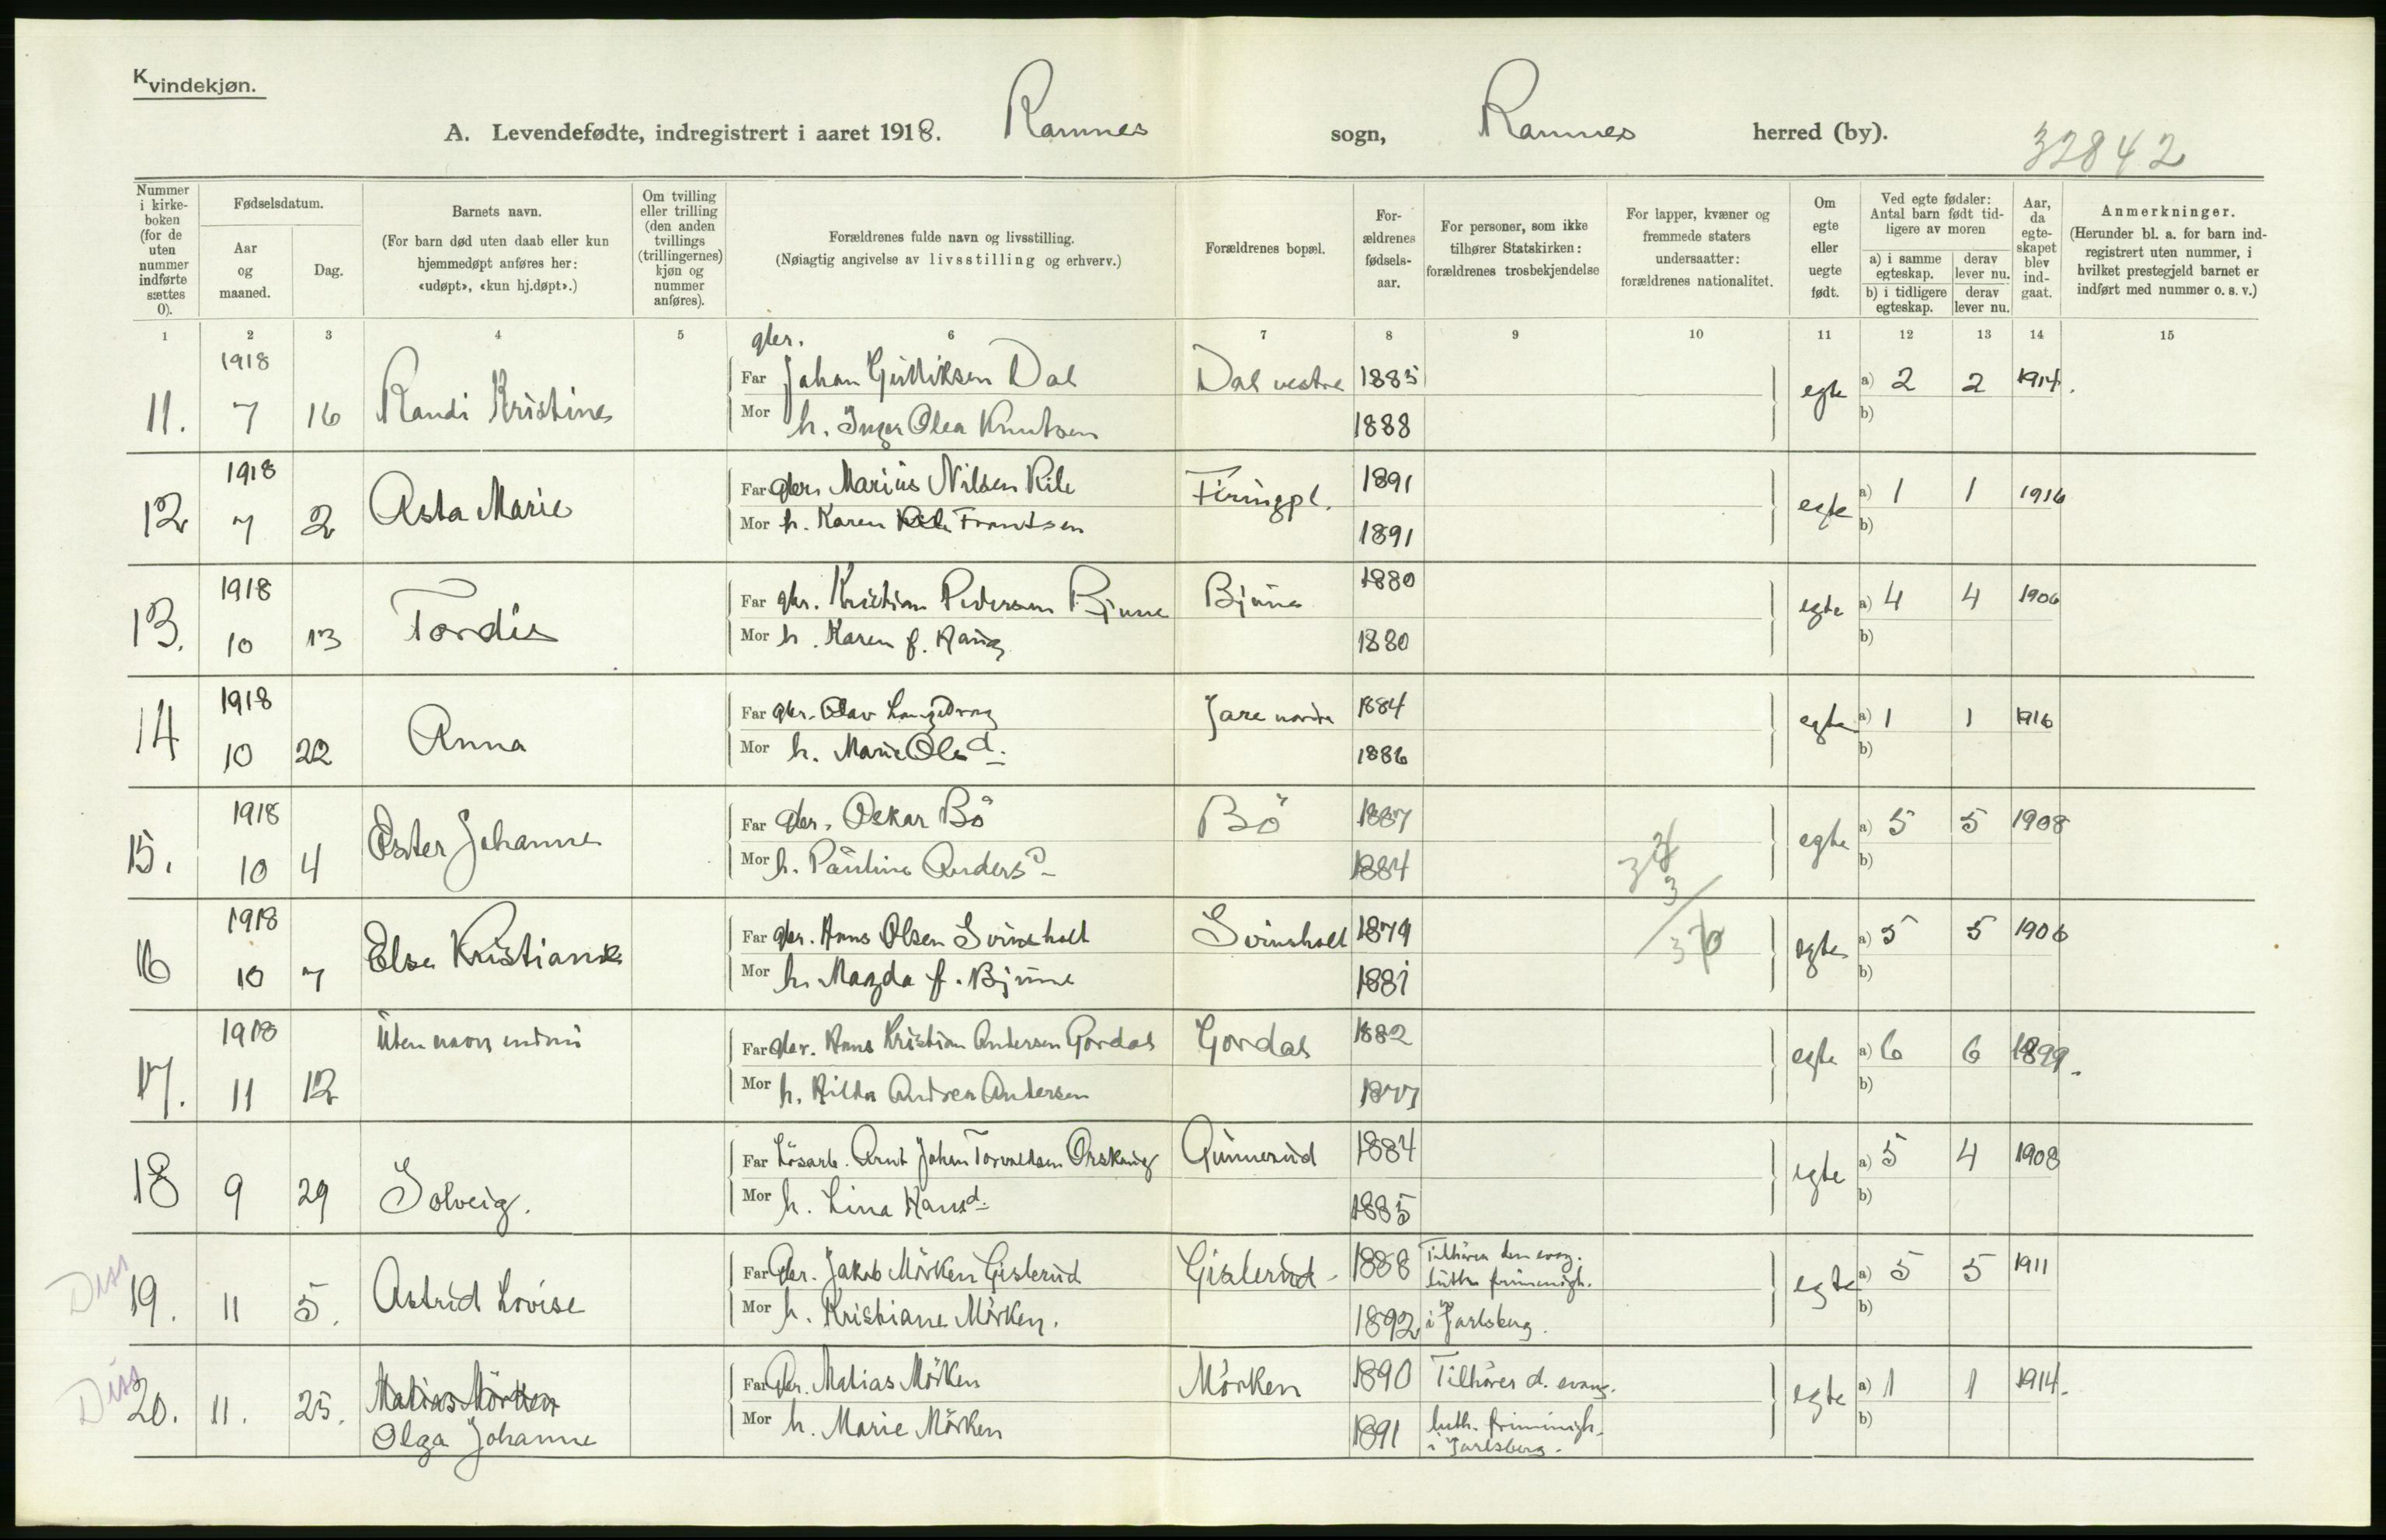 Kvindekjøn.
A. Levendefødte, indregistrert i aaret 1918. Ramnes sogn, Ramnes herred (by). 32842
Nummer i kirke-boken (for de uten nummer indførte sættes 0).
Fødselsdatum.
Aar og maaned.
Dag.
Barnets navn.
(For barn død uten daab eller kun hjemmedøpt anføres her: «udøpt», «kun hj.døpt».)
Om tvilling eller trilling (den anden tvillings (trillingernes) kjøn og nummer anføres).
Forældrenes fulde navn og livsstilling.
(Nøiagtig angivelse av livsstilling og erhverv.)
Forældrenes bopæl.
For-ældrenes fødsels-aar.
For personer, som ikke tilhører Statskirken: forældrenes trosbekjendelse
For lapper, kvæner og fremmede staters undersaatter: forældrenes nationalitet.
Om egte eller uegte født.
Ved egte fødsler: Antal barn født tid-ligere av moren
a) i samme egteskap. derav lever nu.
b) i tidligere egteskap. derav lever nu.
Aar, da egte-skapet blev ind-gaat.
Anmerkninger.
(Herunder bl. a. for barn ind-registrert uten nummer, i hvilket prestegjeld barnet er indført med nummer o. s. v.)
1 2 3 4 5 6 7 8 9 10 11 12 13 14 15
11. 1918 7 16 Randi Kristine
Far gbr. Johan Gulliksen Dal Dal vestre 1885 egte a) 2 2 1914.
Mor h. Inger Olea Knutsen 1888 b)
12 1918 7 2 Asta Marie
Far gbr. Marius Nilsen Kile 1891 egte a) 1 1 1916
Mor h. Karen Frantsen 1891 b)
13. 1918 10 13 Tordis
Far gbr. Kristian Pedersen Bjune Bjune 1880 egte a) 4 4 1906
Mor h. Karen f. Haug 1880 b)
14 1918 10 22 Anna
Far gbr. Olav Jare nordre 1884 egte a) 1 1 1916
Mor h. Marie Olsd. 1886 b)
15. 1918 10 4 Ester Johanne
Far gbr. Oskar Bö Bö 1887 egte a) 5 5 1908
Mor h. Pauline Andersd. 1884 b)
16 1918 10 7 Else Kristiane
Far gbr. Hans Olsen Svinsholt Svinsholt 1879 egte a) 5 5 1906
Mor h. Magda f. Bjune 1881 b)
17. 1918 11 12 Uten navn endnu
Far gbr. Hans Kristian Andersen Gordal Gordal 1882 egte a) 6 6 1899.
Mor h. Hilda Andrea Andersen 1877 b)
18 9 29 Solveig.
Far Lösarb. Arnt Johan Torvaldsen Orskaug Gunnerud 1884 egte a) 5 4 1908
Mor h. Lina Hansd. 1885 b)
Diss
19. 11 5. Astrid Lovise
Far Gbr. Jakob Mörken Gislerud Gislerud 1888 Tilhörer den evang. luth. frimenigh. egte a) 5 5 1911
Mor h. Kristiane Mörken. 1892 i Jarlsberg. b)
Diss
20. 11. 25. Matias Mörken Olga Johanne
Far Gbr. Matias Mörken Mörken 1890 Tilhörer d. evang. egte a) 1 1 1914.
Mor h. Marie Mörken 1891 luth. frimenigh. i Jarlsberg. b)